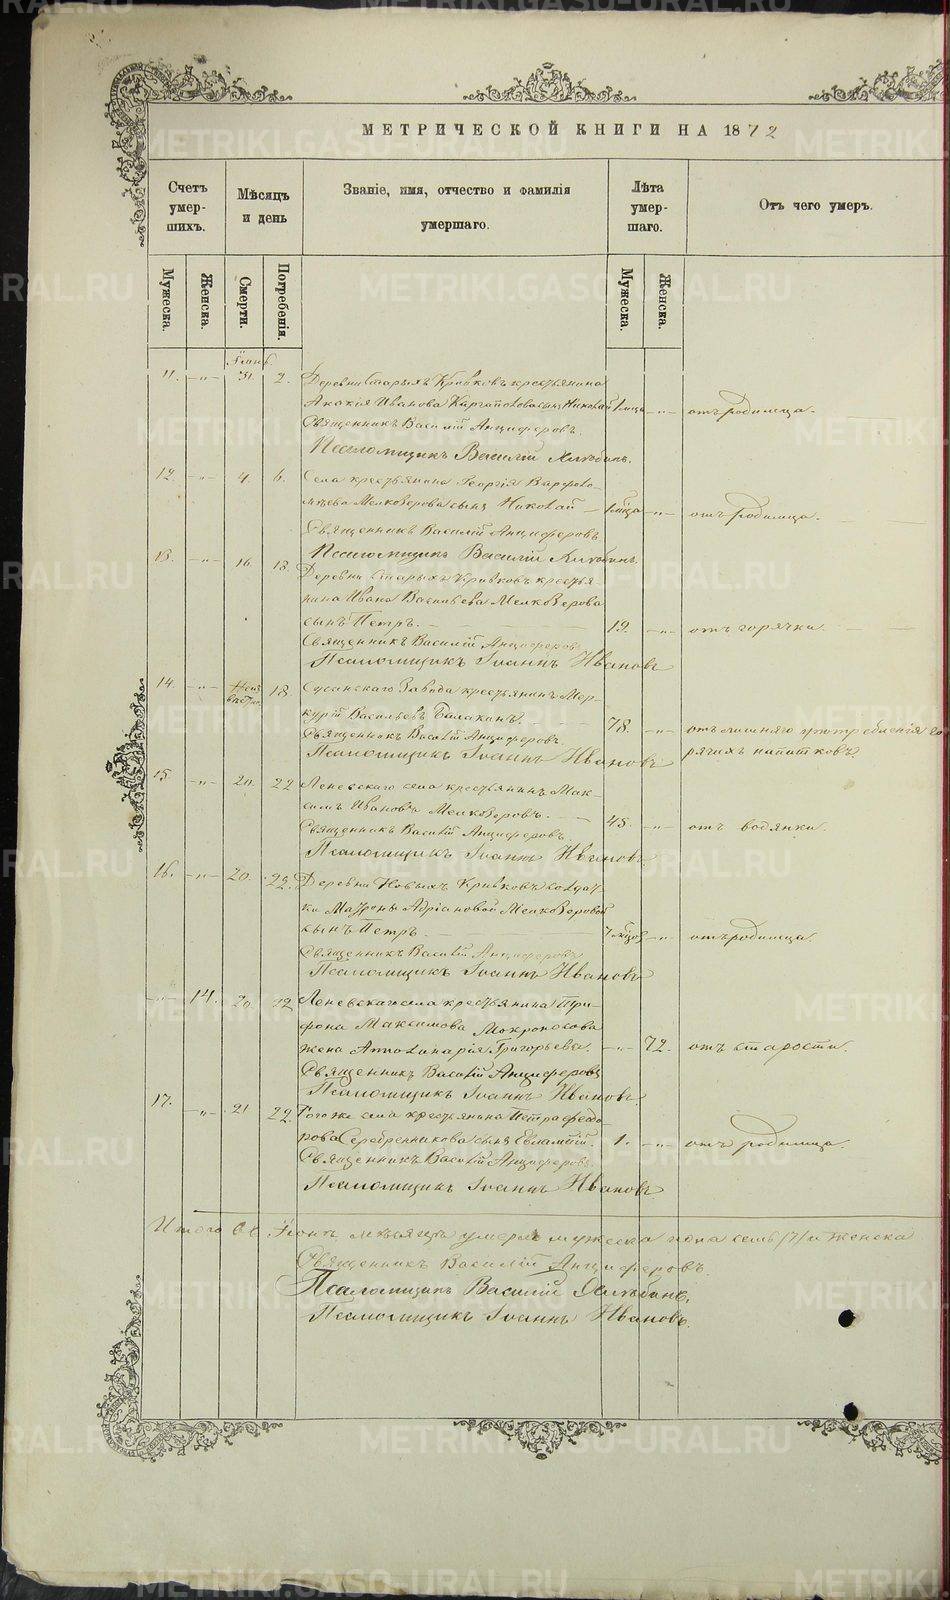 МЕТРИЧЕСКОЙ КНИГИ НА 1872
Счетъ умер-шихъ.
Мѣсяцъ и день
Званіе, имя, отчество и фамилія умершаго.
Лѣта умер-шаго.
Отъ чего умеръ.
Мужеска.
Женска.
Смерти.
Погребенія.
Мужеска.
Женска.
Іюнь
11. -"- 31. 2. Деревни Старыхъ Кривковъ крестьянина
Акакія Иванова Каргаполова сынъ Николай 1 мца -"- отъ родимца.
Священникъ Василій Анциферовъ.
Псаломщикъ Василій
12. -"- 4. 6. Села крестьянина Георгія Варфоло-
мѣева Мелкозерова сынъ Николай - 1 мца -"- отъ родимца.
Священникъ Василій Анциферовъ
Псаломщикъ Василій
13. -"- 16. 18. Деревни Старыхъ Кривковъ крестья-
нина Ивана Васильева Мелкозерова
сынъ Петръ. 19. -"- отъ горячки.
Священникъ Василій Анциферовъ
Псаломщикъ Іоаннъ Ивановъ
14. -"- Неиз вѣстно. 18. Сусанскаго Завода крестьянинъ Мер-
курій Васильевъ Балакинъ. 78. -"- отъ лишняго употребленія го
рячихъ напитковъ.
Священникъ Василій Анциферовъ
Псаломщикъ Іоаннъ Ивановъ
15. -"- 20. 22 Леневскаго села крестьянинъ Мак-
симъ Ивановъ Мелкозеровъ. 45. -"- отъ водянки.
Священникъ Василій Анциферовъ
Псаломщикъ Іоаннъ Ивановъ
16. -"- 20. 22. Деревни Новыхъ Кривковъ солдат-
ки Матроны Адріановой Мелкозеровой
сынъ Петръ 7 мцов -"- отъ родимца.
Священникъ Василій Анциферовъ
Псаломщикъ Іоаннъ Ивановъ
-"- 14. 20. 22 Леневскаго села крестьянина Три-
фона Максимова Мокроносова
жена Апполинарія Григорьева. -"- 72. отъ старости.
Священникъ Василій Анциферовъ
Псаломщикъ Іоаннъ Ивановъ.
17. -"- 21 22. Того же села крестьянина Петра Федо-
рова Серебренникова сынъ Евлампій. 1. -"- отъ родимца
Священникъ Василій Анциферовъ.
Псаломщикъ Іоаннъ Ивановъ
Итого въ Іюнѣ мѣсяцѣ умерло мужеска пола семь /7/ и женска
Священникъ Василій Анциферовъ.
Псаломщикъ Василій
Псаломщикъ Іоаннъ Ивановъ.
METRIKI.GASO-URAL.RU